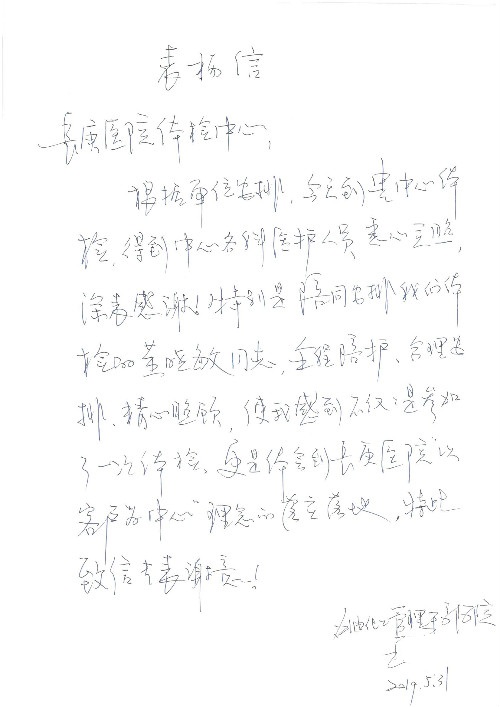 表扬信
长庚医院体检中心,
根据单位安排,今天到贵中心体
检,得到中心各科医护人员悉心照顾,
深表感谢!特别是陪同安排我们体
检的董晓敏同志,全程陪护、合理安
排、精心照顾,使我感到不仅是参加
了一次体检,更是体会到长庚医院“以
客户为中心”理念的落地,特此
致信 表谢意!
2019.5.31